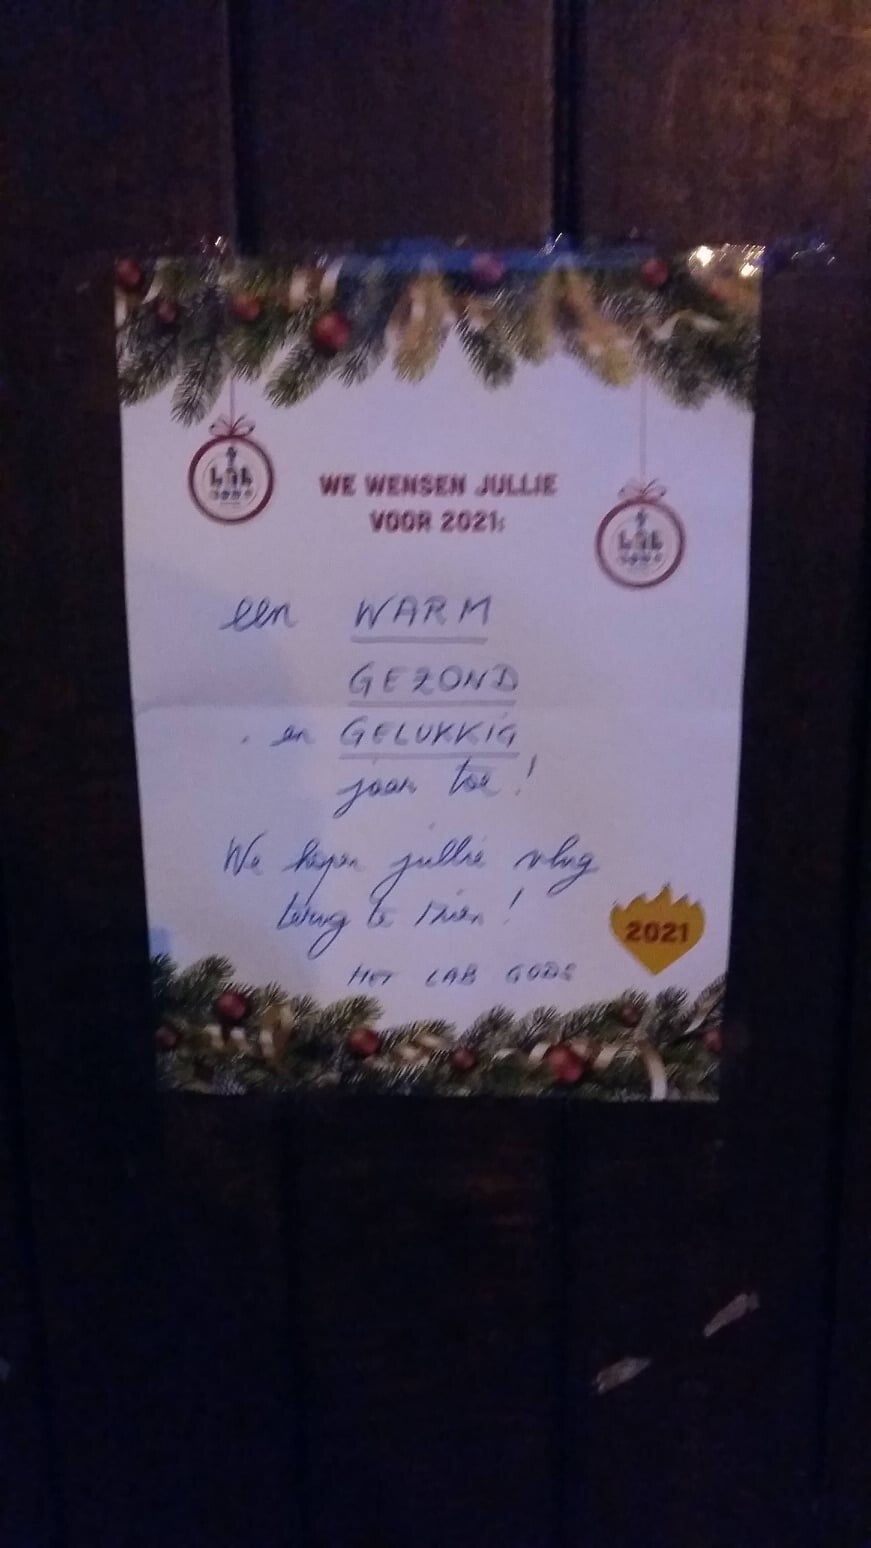 WE WENSEN JULLIE
VOOR 2021:
een WARM
GEZOND
en GELUKKIG
jaar toe!
We hopen jullie vlug
terug te zien!
2021
HET LAB
LAB
LAB